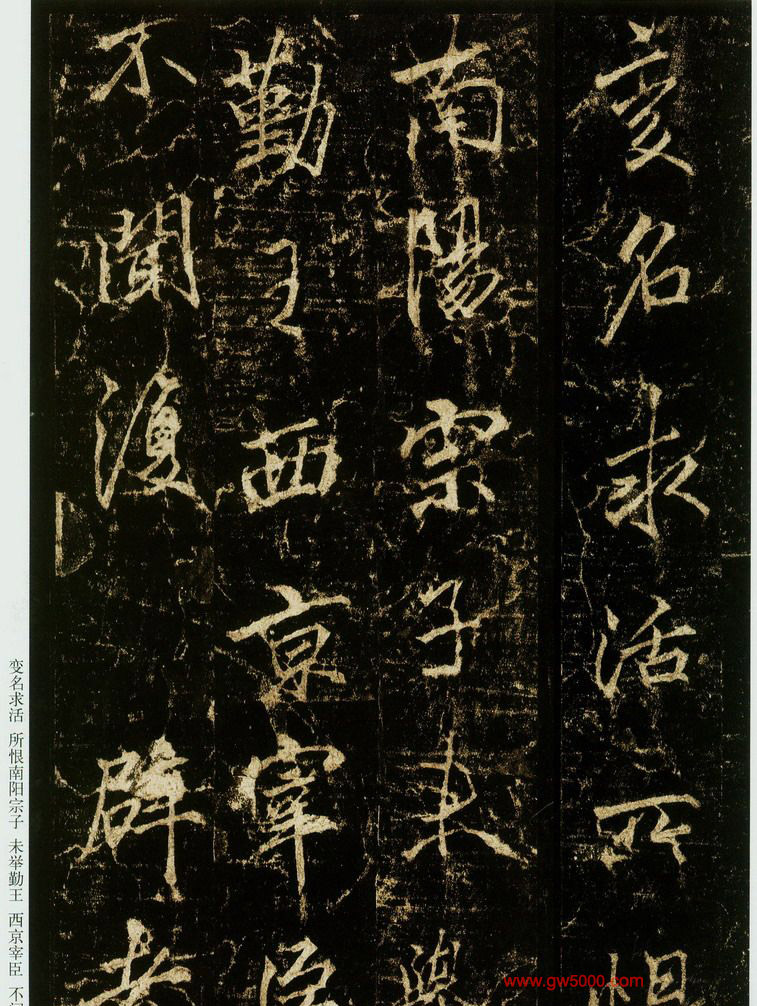 变名求活所恨
南陽宗子未舉
勤王西京宰臣
不聞復辟孝
变名求活 所恨南阳宗子 未举勤王 西京宰臣 不
www.gw5000.com